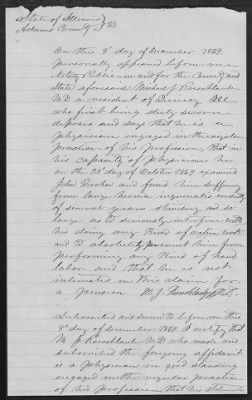 State of Illinois } SS
Adams County
On this 8" day of December 1869
Personally appeared before me a
Notary Public in and for the County and
State aforesaid Michael J. Roeschlaub
M.D. a resident of Quincy Ill
who first being duly sworn
deposes and says that he is a
physician engaged in the regular
practice of his profession, that in
his capacity of physician he
on the 30" day of October 1869 examined
John Booker and found him suffering
from large hernia inguinalis
of several years standing and so
large as to seriously interfere with
his doing any kind of active work
and to absolutely prevent him from
performing any kind of hard
labor and that he is not
interested in this claim for
a pension M. J. Roeschlaub M.D.
Subscribed and sworn to before me this
8" day of December 1869. I certify that
M. J. Roeschlaub M.D who made and
subscribed the forgoing affidavit
is a physician in good standing
engaged in the regular practice
of his profession that his